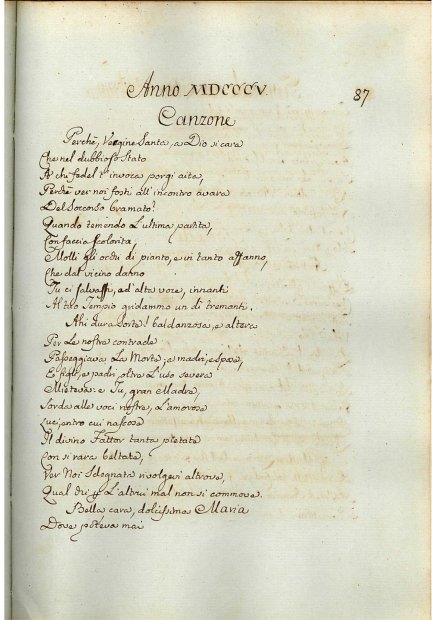 Anno MDCCCV.
87
Canzone
Perchè, Vergine Santa, a Dio sì cara
Che nel dubbioso stato
A chi fedel t'invoca porgi aita,
Perchè ver noi fosti all'incontro avara
Del Soccorso bramato?
Quando temendo L'ultima partita,
Con faccia scolorita,
Molli gli occhi di pianto, e in tanto affanno,
Che dal vicino danno
Tu ci salvassi, ad alta voce, innanti
Al tuo Tempio gridammo un dì tremanti.
Ahi dura sorte! baldanzosa, e altera
Per Le nostre contrade
Passeggiava La Morte; e madri, e spose,
E figli, e padri, oltre L'uso severa
Mieteva: e Tu, gran Madre,
Sorda alle voci nostre, L'amorose
Luci, entro cui nascose
Il divino Fattor tanta pietate
Con sì rara beltate,
Ver Noi sdegnata rivolgevi altrove,
Qual chi L'altrui mal non si commove.
Bella cara, dolcissima Maria
Dove poteva mai